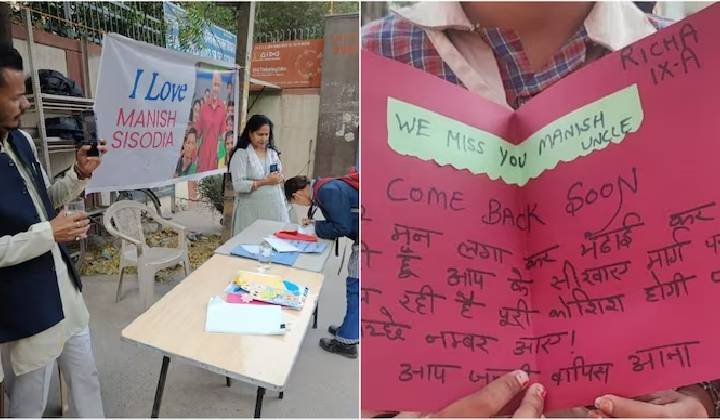 I Love
MANISH
SISODIA
RICHA
IX-A
WE MISS YOU MANISH
UNCLE
COME BACK SOON
मन लगा कर पढाई कर
हूँ आप के सीखाए मार्ग
रही है पूरी कोशिश होगी
नम्बर आए!
आप वापिस आना